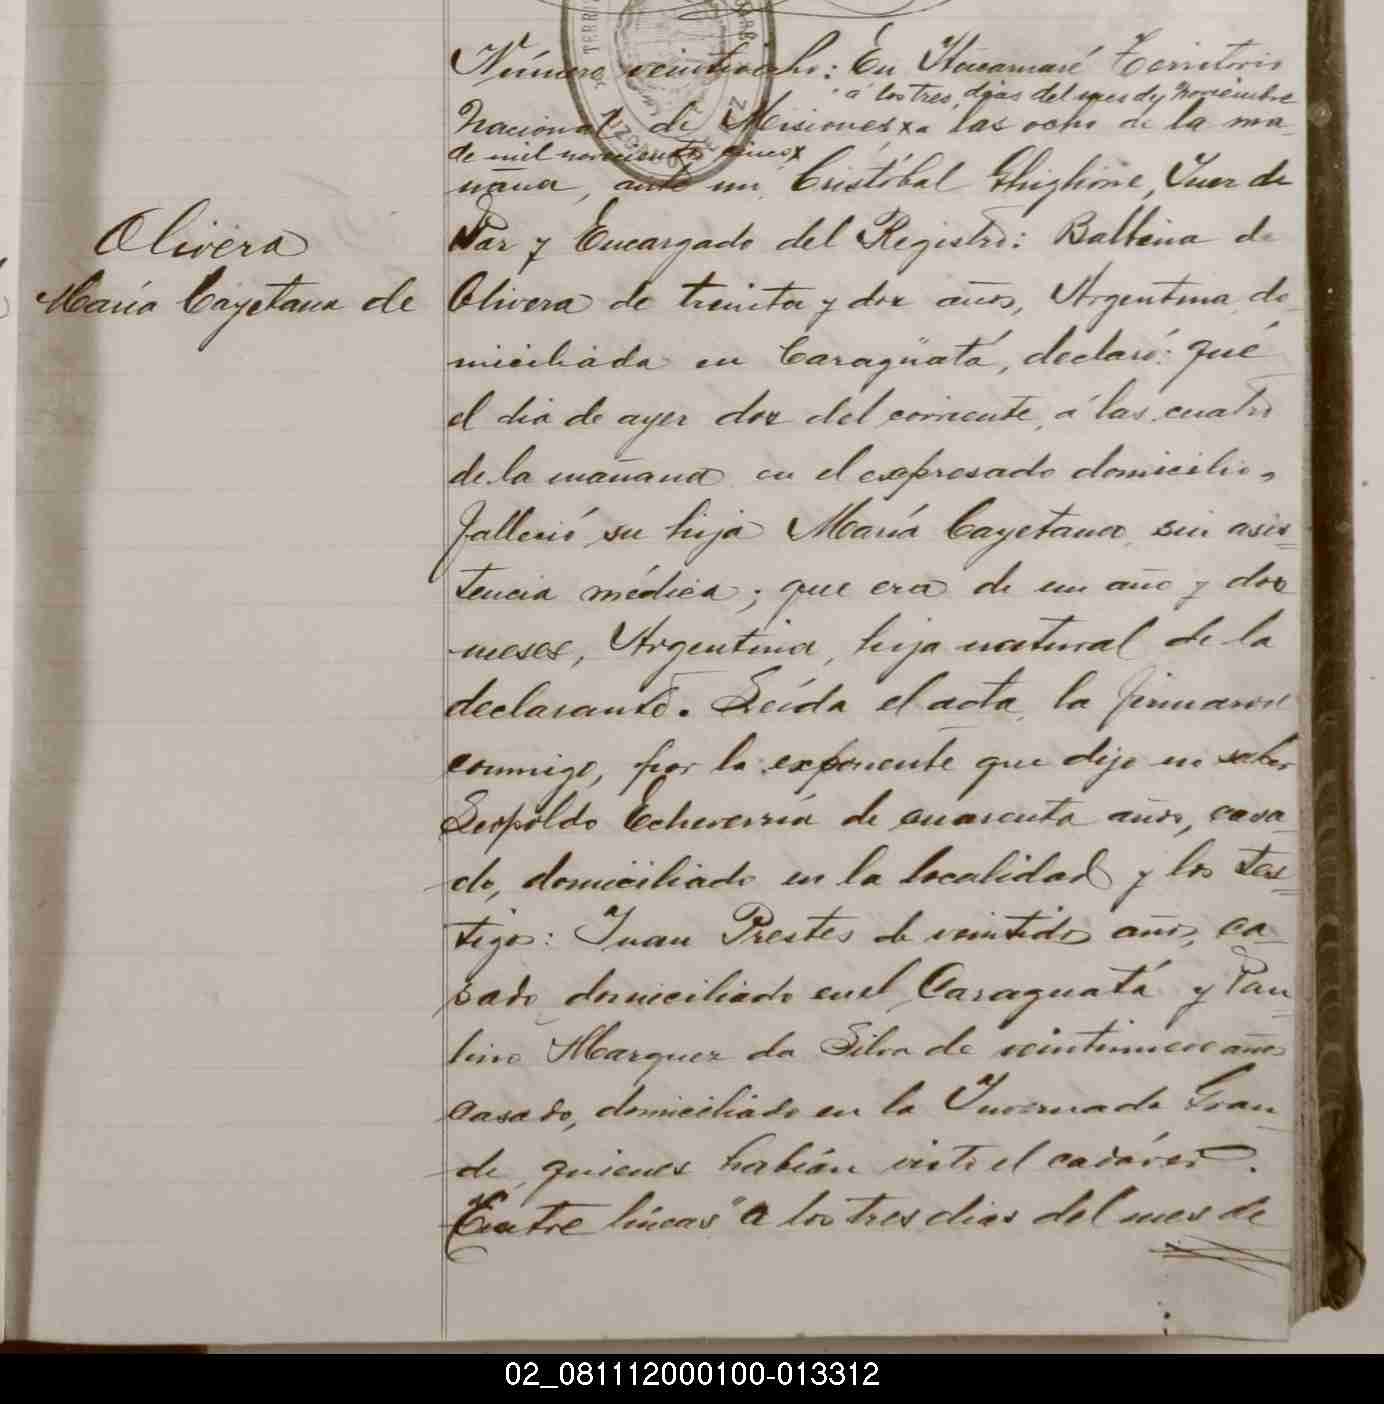 Número veintiocho: En Itacaruaré Territorio
á los tres dias del mes de Noviembre
Nacional de Misiones x a las ocho de la ma-
de mil novecientos cinco x
ñana, ante mi, Cristóbal Ghiglione, Juez de
Olivera
Paz y Encargado del Registro: Balbina de
María Cayetana de
Olivera de treinta y dos años, Argentina, do-
miciliada en Caraguatá, declaró: qué
el dia de ayer dos del corriente, á las cuatro
de la mañana en el expresado domicilio,
falleció su hija María Cayetana sin asis-
tencia médica; que era de un año y dos
meses, Argentina, hija natural de la
declarante. Leída el acta, la firmaron
conmigo, por la exponente que dijo no saber
Leopoldo Echeverría de cuarenta años, casa-
do, domiciliado en la localidad y los tes-
tigos: Juan Prestes de veintidos años, ca-
sado domiciliado en el Caraguatá y Pau-
lino Marquez da Silva de veintinueve años
casado, domiciliado en la Invernada Gran-
de, quienes habían visto el cadáver.
Entre líneas "a los tres dias del mes de
02_081112000100-013312